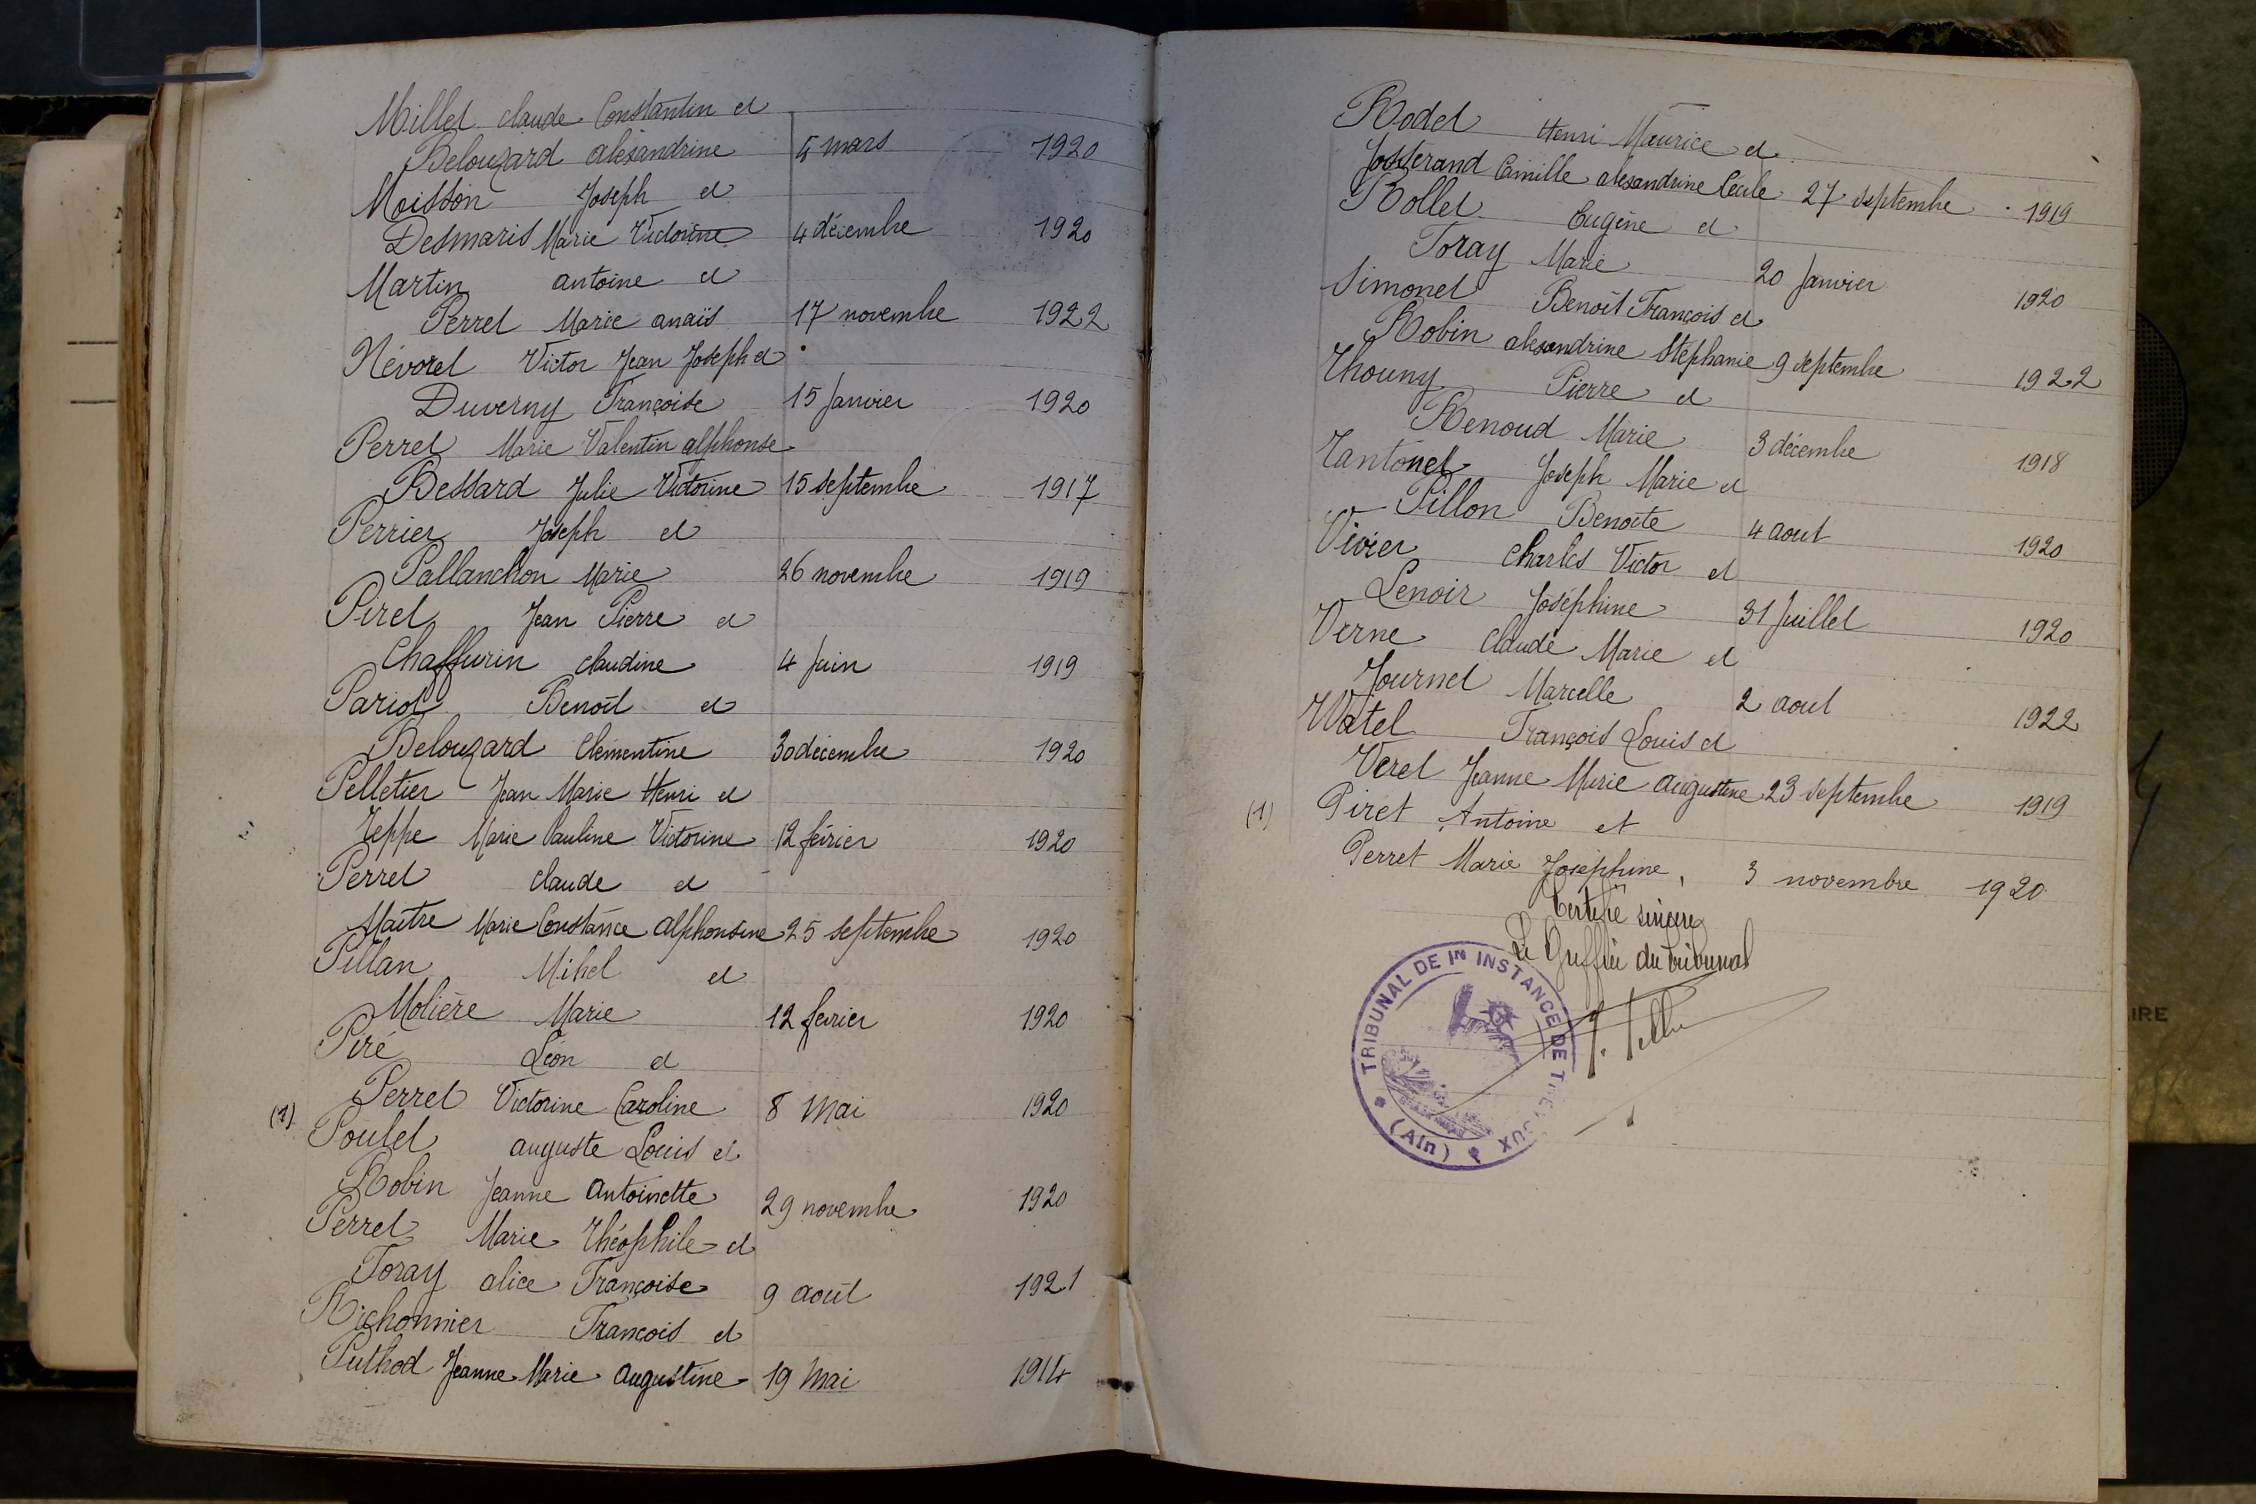 Millet claude Constantin et
Belouzard alexandrine 5 mars 1920
Moisson Joseph et
Desmaris Marie Victorine 4 décembre 1920
Martin antoine et
Perret Marie anaïs 17 novembre 1922
Névoret Victor Jean Joseph et
Duverny Françoise 15 Janvier 1920
Perret Marie Valentin alphonse
Bessard Julie Victorine 15 septembre 1917
Perrier Joseph et
Pallanchon Marie 26 novembre 1919
Piret Jean Pierre et
Chaffurin claudine 4 Juin 1919
Pariot Benoît et
Belouzard Clémentine 30 décembre 1920
Pelletier Jean Marie Henri et
Jeppe Marie Pauline Victorine 12 février 1920
Perret claude et
Maitre Marie Constance alphonsine 25 septembre 1920
Pillan Mihel et
Molière Marie 12 février 1920
Piré Léon et
Perret Victorine Caroline 8 Mai 1920
(1) Poulet auguste Louis et
Robin Jeanne antoinette 29 novembre 1920
Perret Marie Théophile et
Foray alice Françoise 9 août 1921
Richonnier François et
Puthod Jeanne Marie augustine 19 Mai 1914
Rodet Henri Maurice et
Josserand Camille alexandrine Cécile 27 septembre 1919
Rollet Eugène et
Foray Marie 20 Janvier 1920
Simonet Benoît François et
Robin alexandrine Stéphanie 9 septembre 1922
Thouny Pierre et
Renoud Marie 3 décembre 1918
Tantonet Joseph Marie et
Pillon Benoite 4 aout 1920
Vivier Charles Victor et
Lenoir Joséphine 31 Juillet 1920
Verne Claude Marie et
Journet Marcelle 2 aout 1922
Watel François Louis et
Veret Jeanne Marie augustine 23 septembre 1919
(1) Piret Antoine et
Perret Marie Joséphine, 3 novembre 1920
Certifié sincère
Le Greffier du tribunal
TRIBUNAL DE 1re INSTANCE DE TREVOUX
(Ain)
IRE